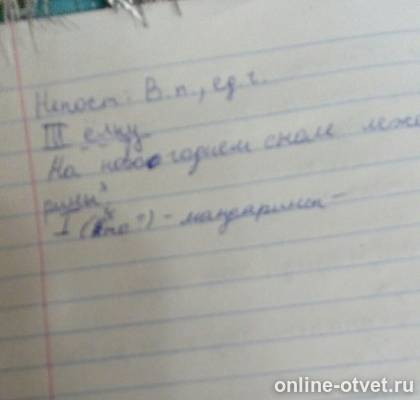 Непост: В.п., ед.ч.
III ёлку
На новогоднем столе лежа
рины³
I (что?) - мандарины -
online-otvet.ru